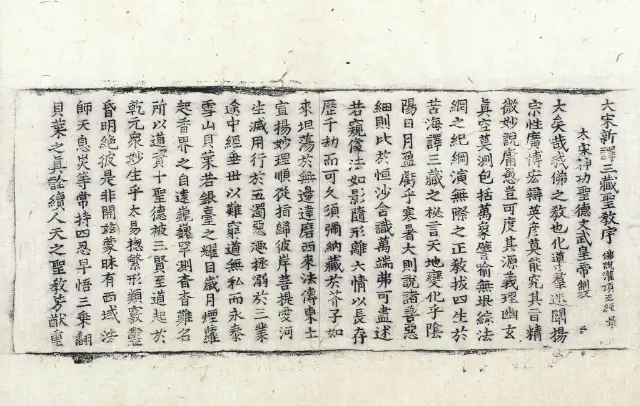 大宋新譯三藏聖教序 佛說灌頂王經 景
太宋神功聖德文武皇帝製
大矣哉我佛之教也化導羣迷闡揚
宗性廣博宏辯英彥莫能究其旨精
微妙說庸愚豈可度其源義理幽玄
真空莫測包括萬象譬喻無垠綜法
網之紀綱演無際之正教拔四生於
苦海譯三藏之秘言天地變化乎陰
陽日月盈虧乎寒暑大則說諸善惡
細則比於恒沙含識萬端弗可盡述
若窺像法如影隨形離六情以長存
歷千劫而可久須彌納藏於芥子如
來坦蕩於無邊達磨西來法傳東土
宣揚妙理順從指歸彼岸菩提愛河
生滅用行於五濁惡海拯溺於三業
途中經垂世以難窮道無私而永泰
雪山貝葉若銀臺之耀目歲月煙蘿
起香界之自遠巍巍罕測杳杳難名
所以道資十聖德被三賢至道起於
乾元衆妙生乎太易揔繁形類竅鑿
昏明絕彼是非開茲蒙昧有西域法
師天息災等常持四忍早悟三乘翻
貝葉之真詮續人天之聖教芳猷重